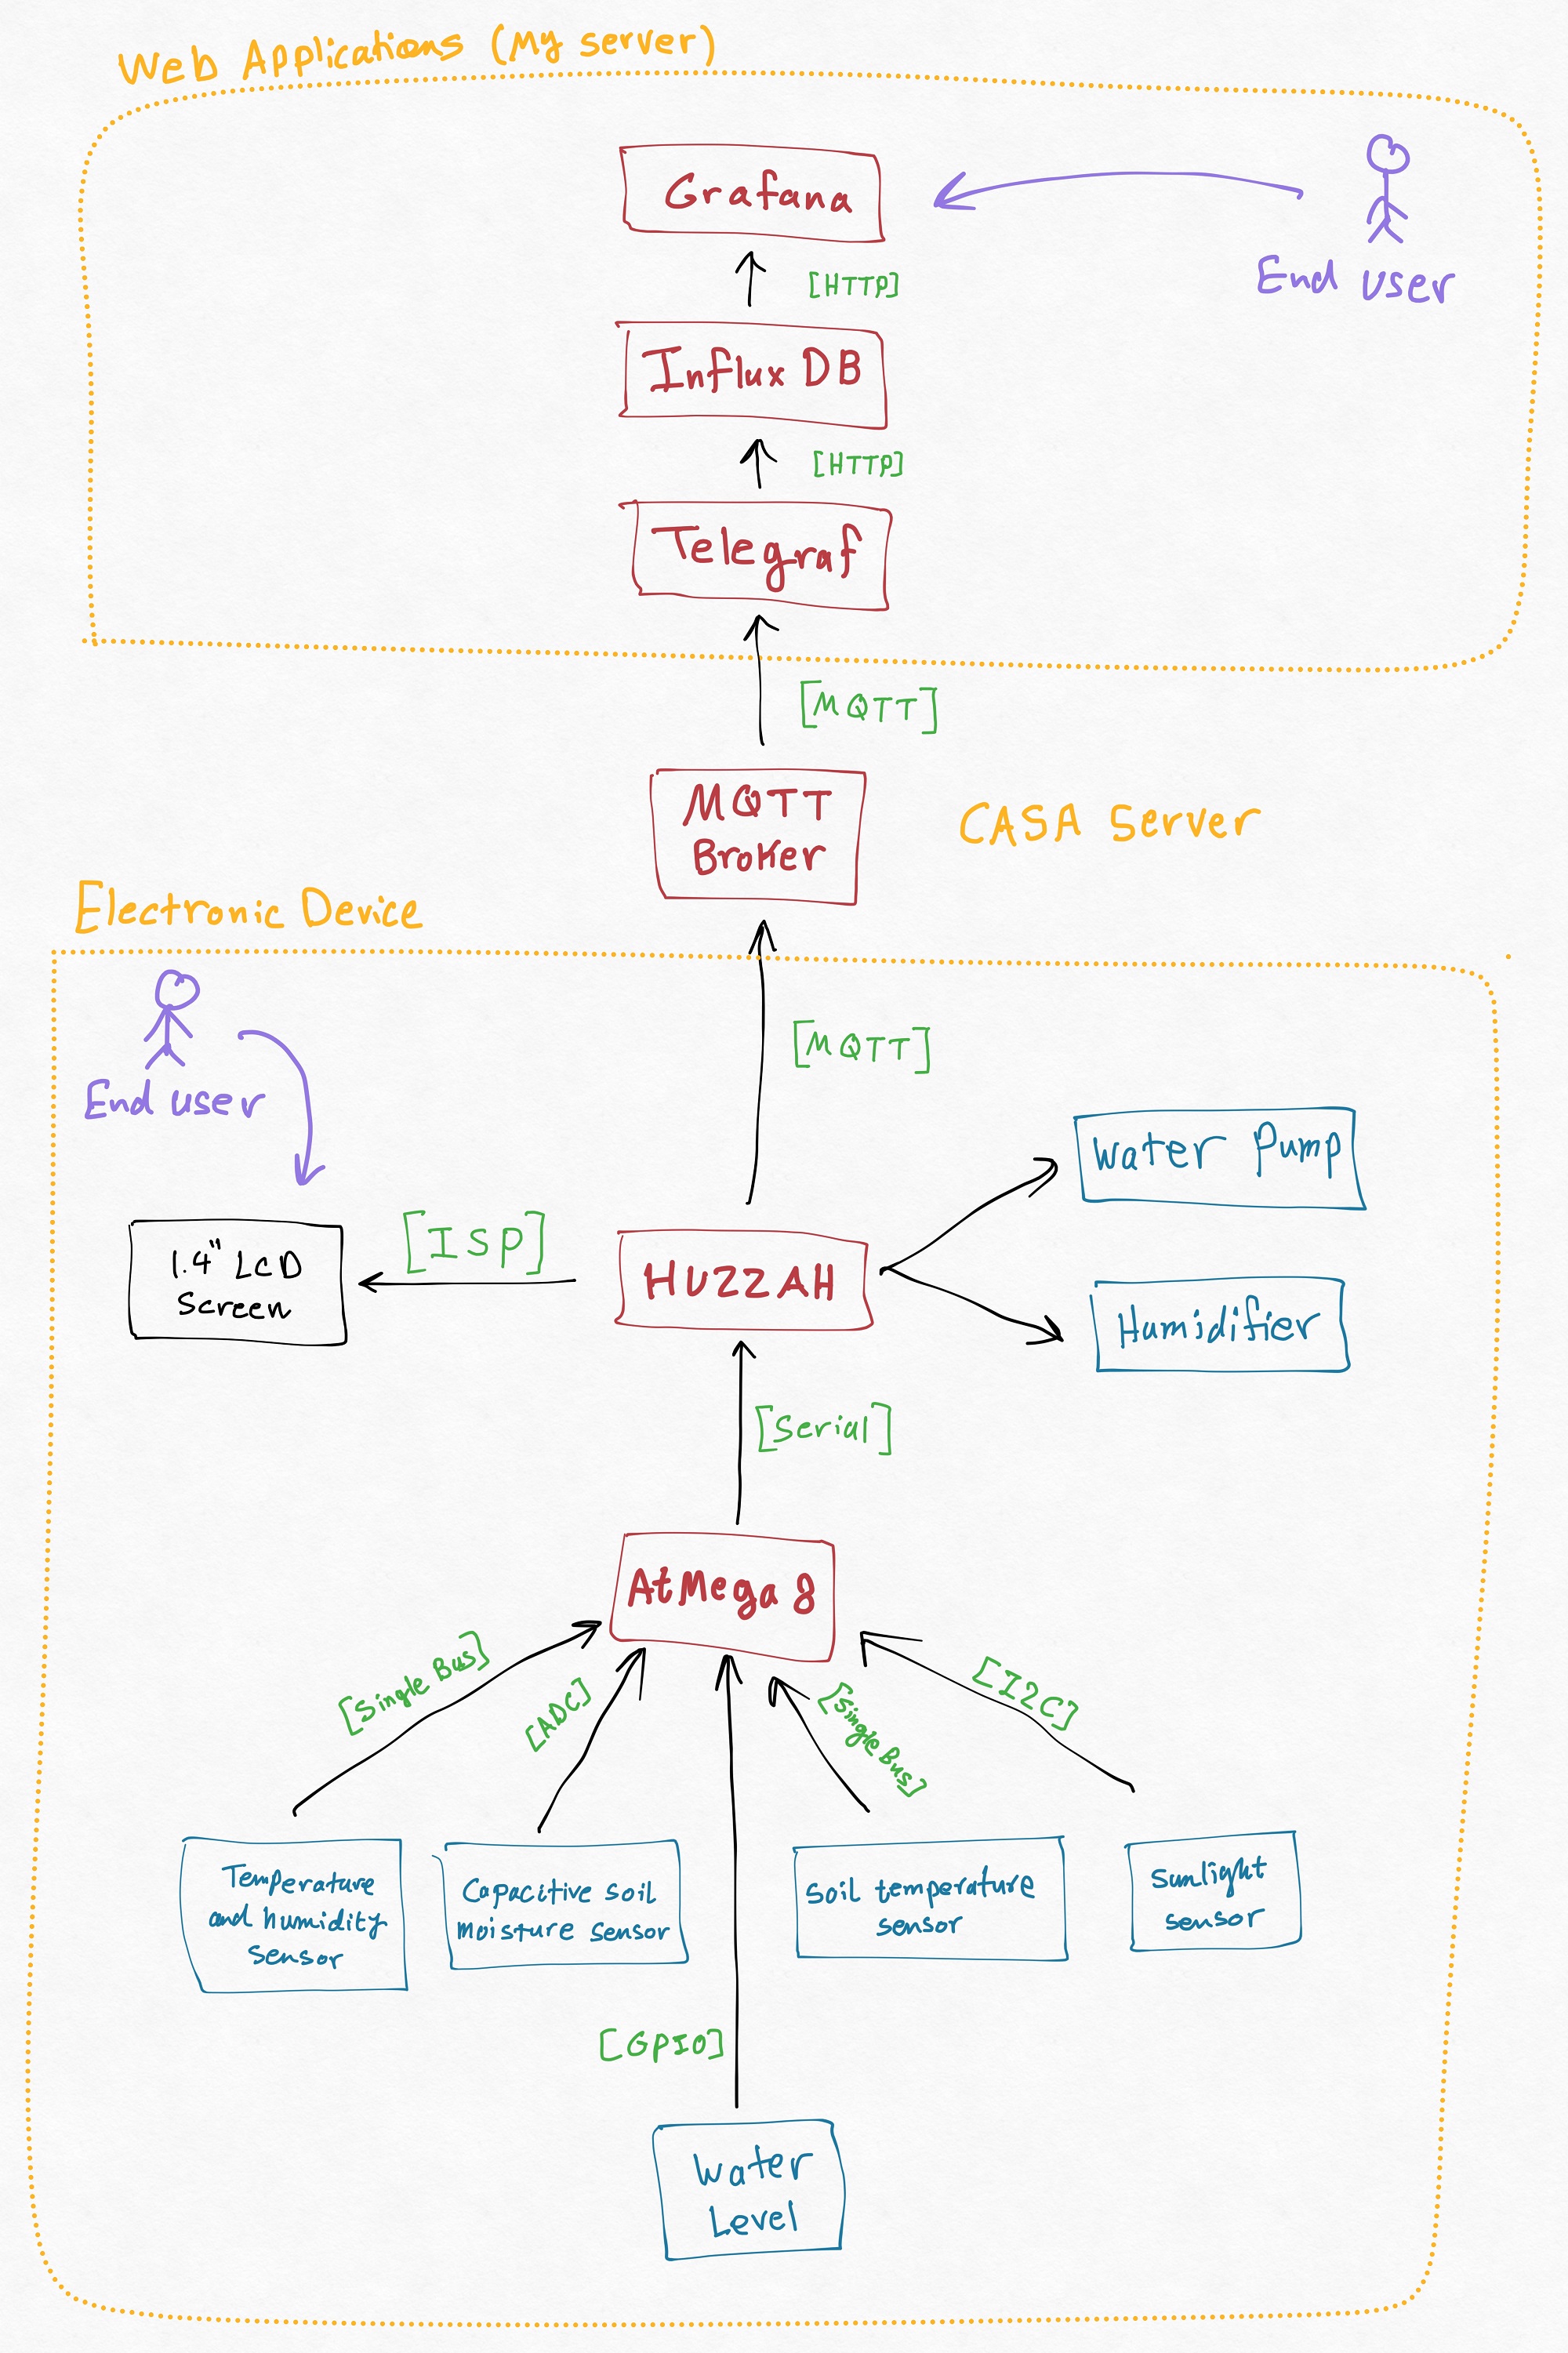 Web Applications (My server)
Grafana
End user
[HTTP]
Influx DB
[HTTP]
Telegraf
[MQTT]
MQTT
Broker
CASA Server
Electronic Device
End user
[MQTT]
Water Pump
1.4" LCD
Screen
[ISP]
HUZZAH
Humidifier
[Serial]
AtMega 8
[Single Bus]
[ADC]
[Single Bus]
[I2C]
Temperature
and humidity
sensor
Capacitive soil
moisture sensor
Soil temperature
sensor
Sunlight
sensor
[GPIO]
Water
Level